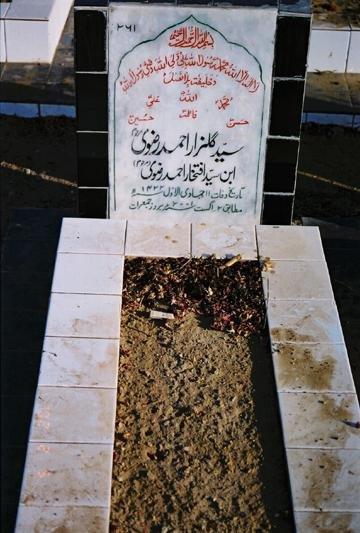 ۳۶۱
بسم اللہ الرحمن الرحیم
لا الہ الا اللہ محمد رسول اللہ علی ولی اللہ وصی رسول اللہ
وخلیفتہ بلا فصل
اللہ
محمدؐ علیؑ
فاطمہؑ
حسنؑ حسینؑ
سید گلزار احمد رضوی
ابن سید افتخار احمد رضوی (مرحوم)
تاریخ وفات ۱۱ جمادی الاول ۱۴۲۲ھ
مطابق ۲ اگست ۲۰۰۱ء بروز جمعرات